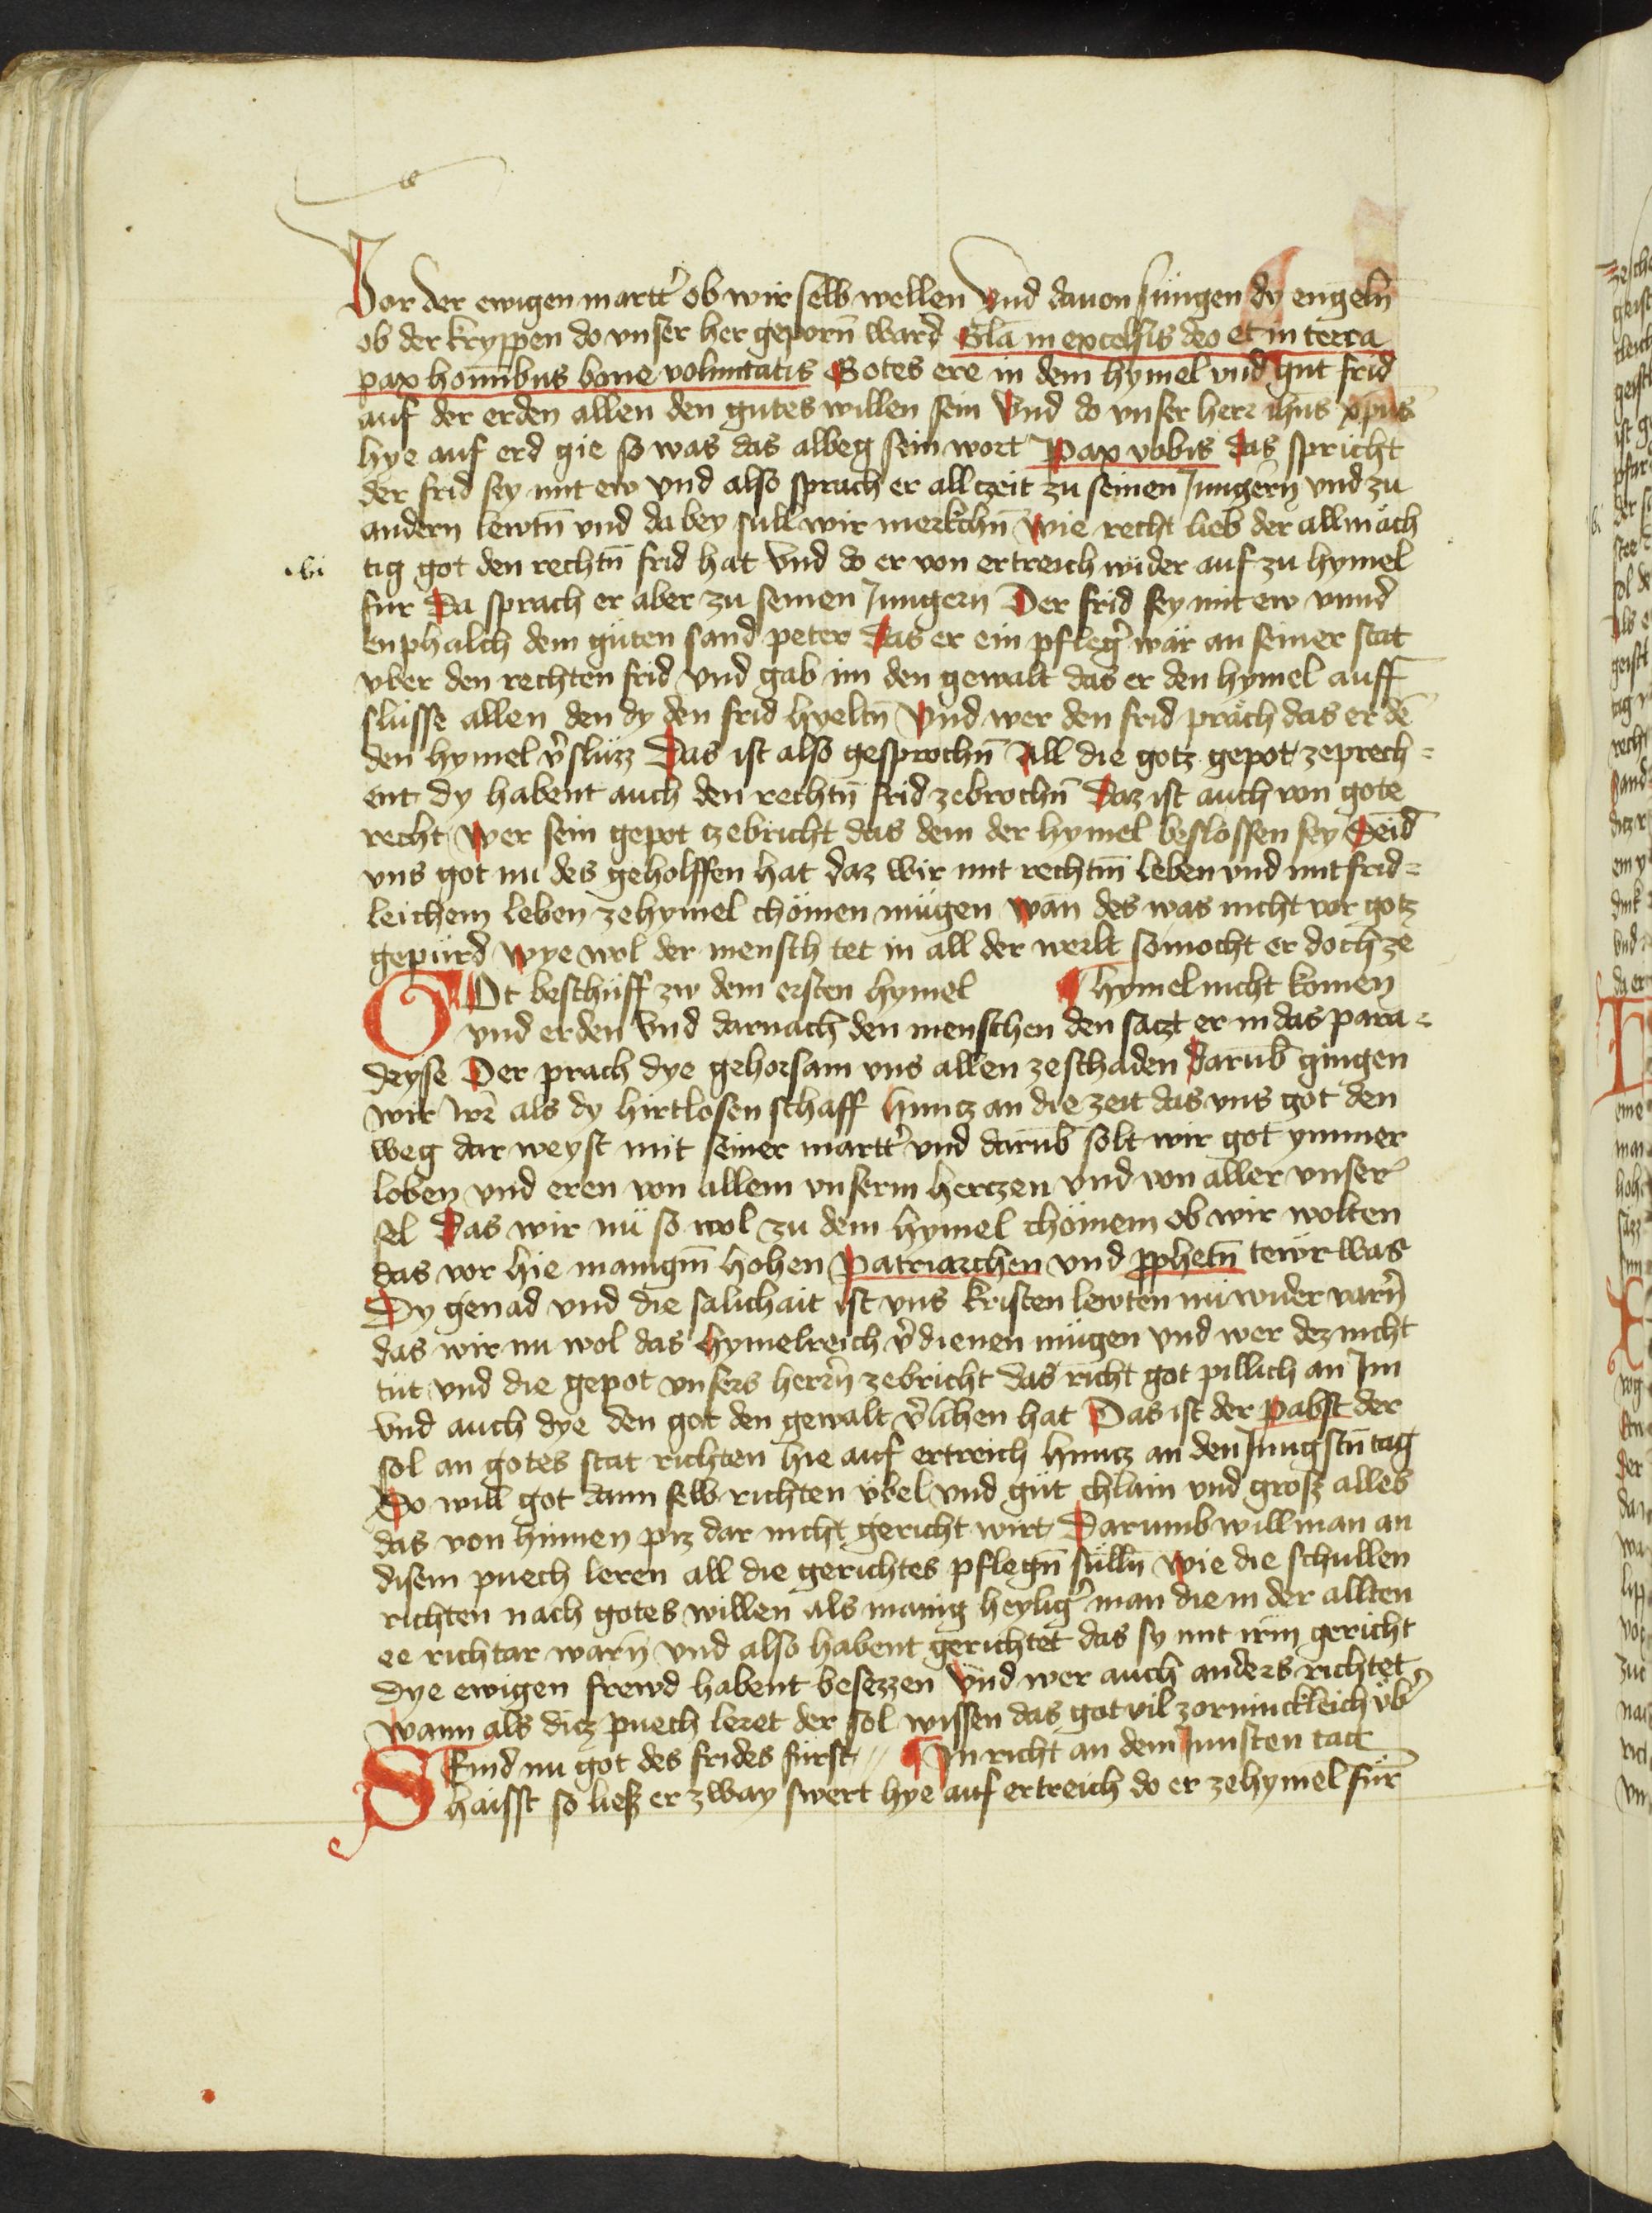 Vor der ewigen martt̉ ob wir selb wellen Vnd dauon sungen dy engeln̄
ob der kryppen do vnser her geporn̄ ward Gl̄a in excelsis deo et in terra
pax homı̄bus bone voluntatis Gotes ere in dem hymel vnd hut frid
auf der erden allen den gutes willen sein Vnd do vnser herr ihūs xp̄us
hye auf erd gie so was das albeg sein wort Pax vobis das spricht
der frid sey mit ew vnd also sprach er allczeit zu seinen Jungern̄ vnd zu
andern lewtn̄ vnd da bey sull wir merkchn̄ Wie recht lieb der allmäch
.vi. tig got den rechtn̄ frid hat Vnd do er von ertreich wider auf zu hymel
fur Da sprach er aber zu seinen Jungern Der frid sey mit ew vnnd
enphalch dem guten sand peter Das er ein pfleg̉ wär an seiner stat
vber den rechten frid vnd gab im den gewalt das er den hymel auff
slusse allen den dy den frid hyeltn̄ Vnd wer den frid präch das er dē
den hymel v̉sluzz Das ist also gesprochn̄ All die gotz gepot zeprech=
ent dy habent auch den rechtn̄ frid zebrochn̄ Daz ist auch von gote
recht Wer sein gepot zebricht das dem der hymel beslossen sey Seid
vns got nu des geholffen hat daz wir mit rechtm̄ leben vnd mit frid=
leichem leben zehymel chömen mügen Wān des was nicht vor gotz
gepürd Wye wol der mensch tet in all der werlt so mocht er doch ze
GOt beschuff zw dem ersten hymel ¶ hymel nicht komen
vnd erden Vnd darnach den menschen den saczt er in das para=
dyse Der prach dye gehorsam vns allen ze schaden Darub̄ gingen
wir irr̄ als dy hirtlosen schaff huncz an die zeit das vns got den
weg dar weyst mit seiner martt̉ vnd darub̄ solt wir got ymmer
loben vnd eren von allem vnserm herczen vnd von aller vnser
sel Das wir nü so wol zu dem hymel chömen ob wir wolten
das vor hie manigm̄ hohen Patriarchen vnd pphetn̄ tewr was
Dy genad vnd die salichait ist vns kristen lewten nu wider varn̄
das wir nu wol das hymelreich v̉dienen mügen vnd wer dez nicht
tüt vnd die gepot vnsers herrn̄ zebricht das richt got pillich an Jm
vnd auch dye den got den gewalt v̉lihen hat Das ist der Pabst der
sol an gotes stat richten hie auf ertreich huncz an den Jungstn̄ tag
Do will got dann selb richten vbel vnd gut chlain vnd grosz alles
das von hinnen piz dar nicht gericht wirt Darumb will man an
disem puech leren all die gerichtes pflegn̄ sülln̄ Wie die schullen
richten nach gotes willen als manig heylig̉ man die in der allten
ee richtar warn̄ vnd also habent gerichtet das sy mit irm̄ gericht
dye ewigen frewd habent besezzen Vnd wer auch anders richtet
Wann als dicz puech leret der sol wissen das got vil zorninckleich vb̉
SEind nu got des frides furst ¶ Jn richt an dem Junsten tact
haisst so liesz er zway swert hye auf ertreich do er zehymel fur